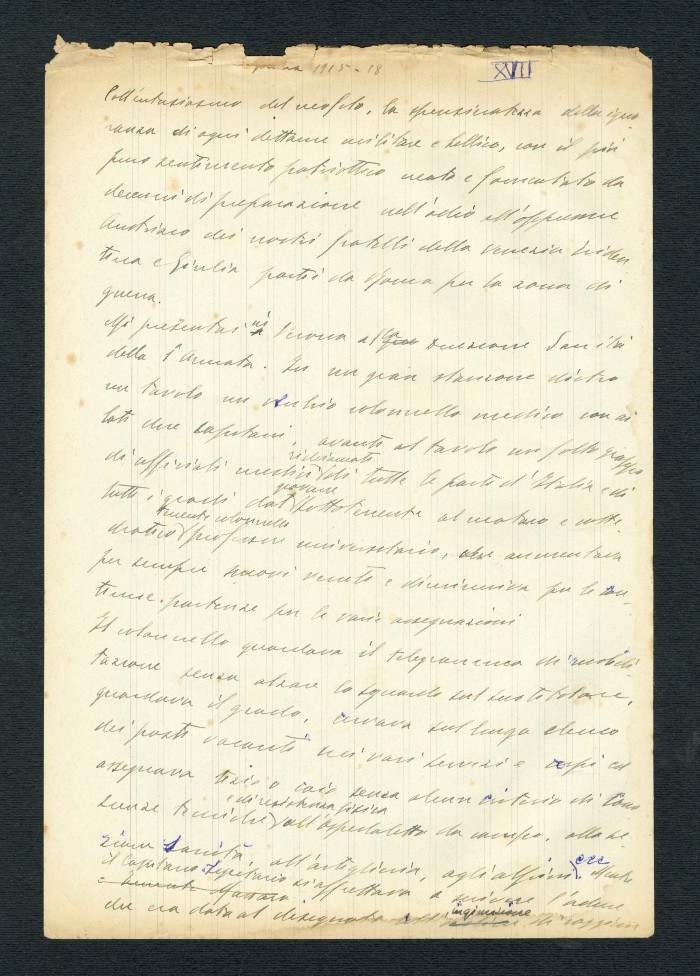 1915-18
XVII
Coll'entusiasmo del neofito, la spensieratezza della igno
ranza di ogni dettame militare e bellico, con il più
puro sentimento patriottico nato e fomentato da
decenni di preparazione nell'odio all'oppressore
Austriaco dei nostri fratelli della Venezia Triden
tina e Giulia partii da Roma per la zona di
guerra.
Mi presentai a Verona alla Direzione Sanità
della 1ª Armata. In un gran stanzone dietro
un tavolo un vecchio colonnello medico con ai
lati due capitani, avanti al tavolo un folto gruppo
richiamati
di ufficiali medici di tutte le parti d'Italia e di
giovane
tutti i gradi dal sottotenente al maturo e catte
tenente colonnello
dratico professore universitario, che aumentava
per sempre nuovi venuti e diminuiva per le con
tinue partenze per le varie assegnazioni
Il colonnello guardava il telegramma di mobili
tazione senza alzare lo sguardo sul suo titolare,
guardava il grado, cercava sul lungo elenco
dei posti vacanti nei vari servizi e ed
assegnava tizio o caio senza alcun criterio di cono
e di resistenza fisica
scenze tecniche all'ospedaletto da campo, alla se
zione sanità, all'artiglieria, agli alpini ecc mentre
il capitano segretario si affrettava a scrivere l'ordine
che era data al designato
ingiunzione